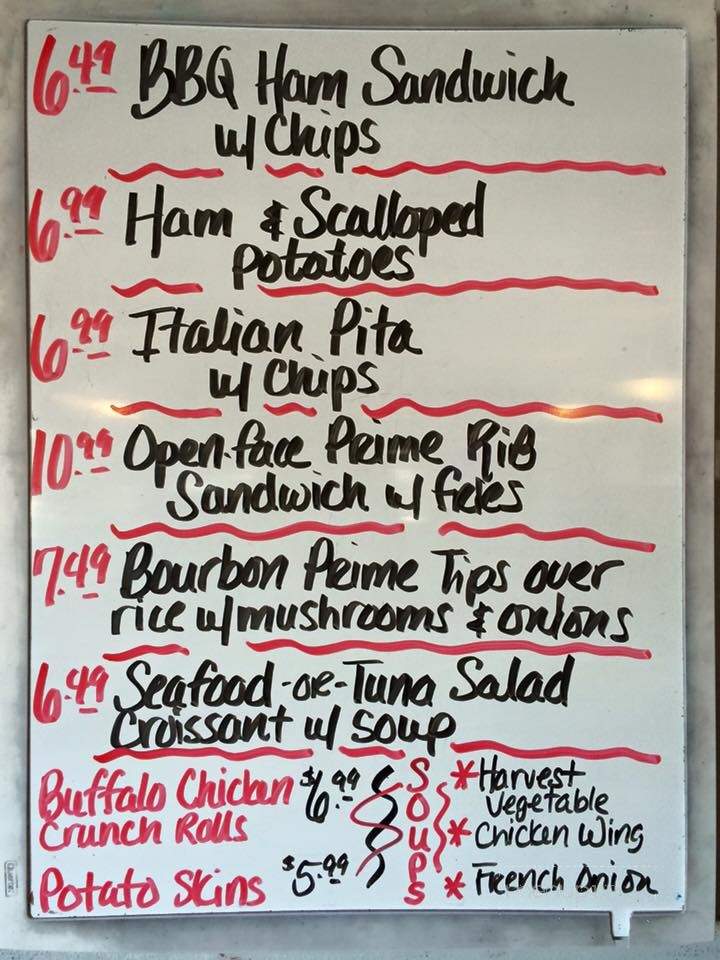 6.49 BBQ Ham Sandwich
w/ Chips
6.99 Ham & Scalloped
Potatoes
6.99 Italian Pita
w/ Chips
10.99 Open-face Prime Rib
Sandwich w/ fries
7.49 Bourbon Prime Tips over
rice w/ mushrooms & onions
6.49 Seafood -or- Tuna Salad
Croissant w/ soup
Buffalo Chicken $6.99
Crunch Rolls
Potato Skins $5.99
SOUPS
* Harvest
Vegetable
* Chicken Wing
* French Onion
Quartet